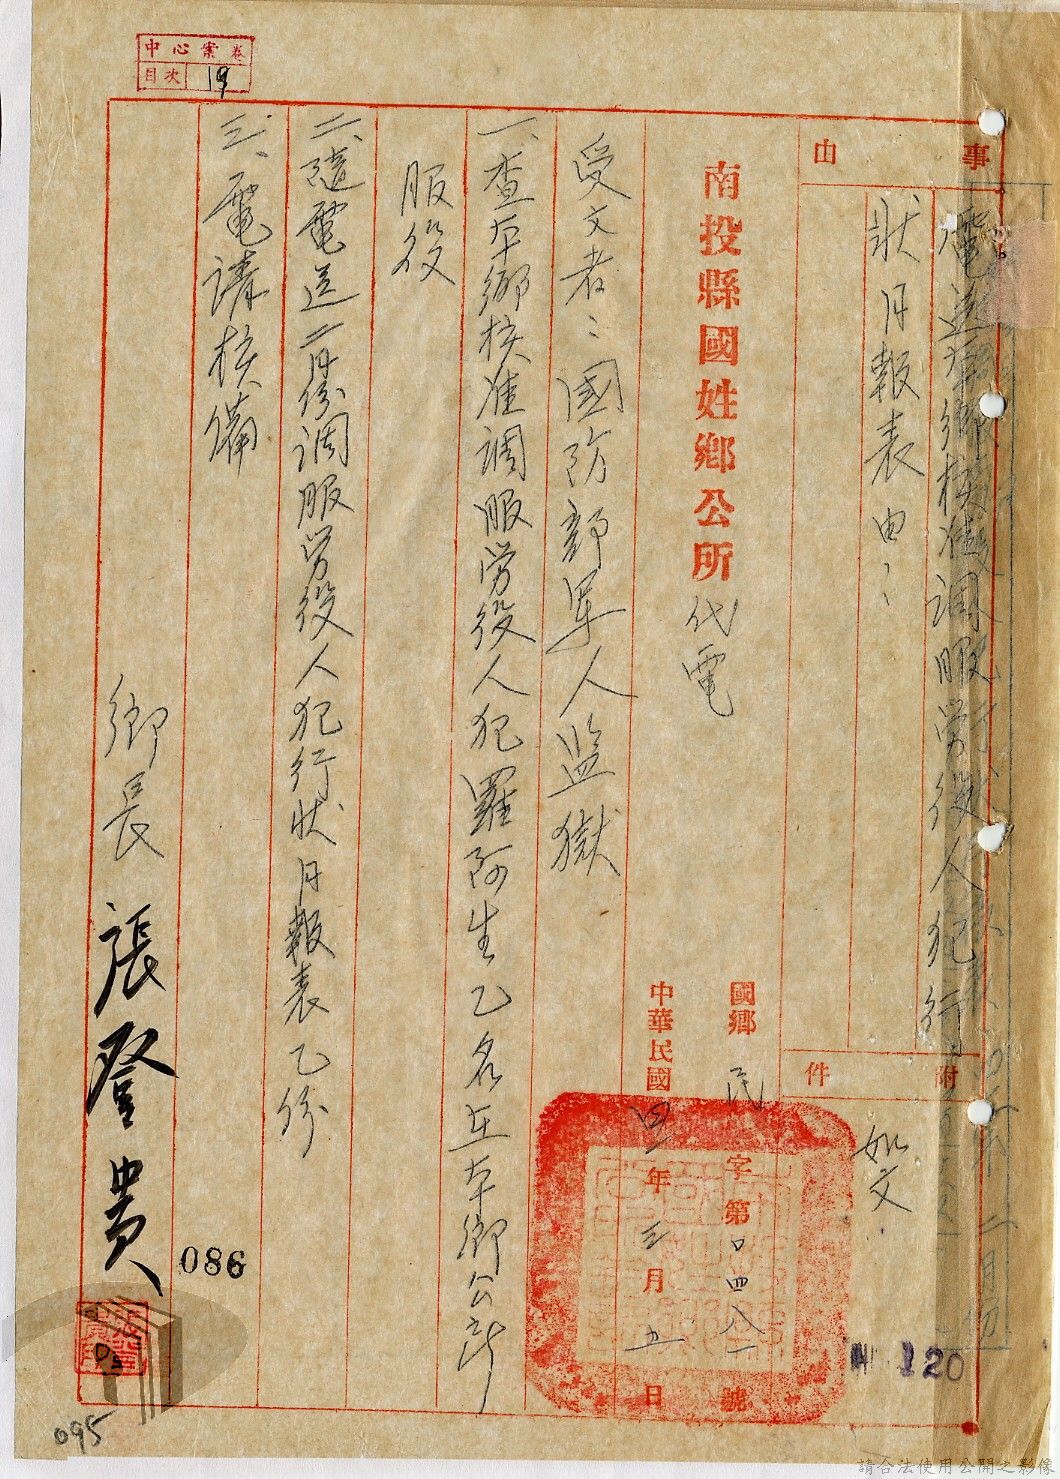 中心案卷
目次 19
事由
電送本鄉核准調服労役人犯行
狀月報表由:
附件
如文
南投縣國姓鄉公所代電
國鄉民字第 四八一號
中華民國四 年三月五日
受文者:國防部軍人監獄
一、查本鄉核准調服労役人犯羅阿生乙名在本鄉公所
服役
二、隨電送二月份調服労役人犯行狀月報表乙份
三、電請核備
鄉長 張登貴
086
095
120
請合法使用公開之影像